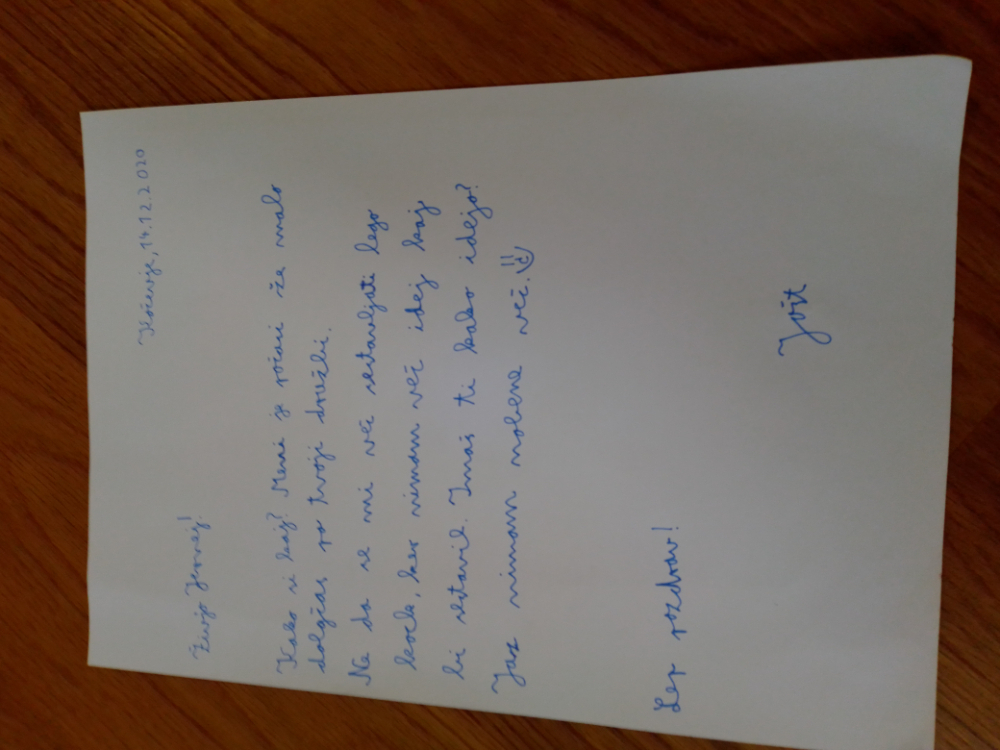 Kočevje, 14.12.2020
Živjo Jernej!
Kako si kaj? Meni je počasi že malo
dolgčas po tvoji družbi.
Ne da se mi več sestavljati lego
kock, ker nimam več idej kaj
bi sestavil. Imaš ti kako idejo?
Jaz nimam nobene več.
Lep pozdrav!
Jošt